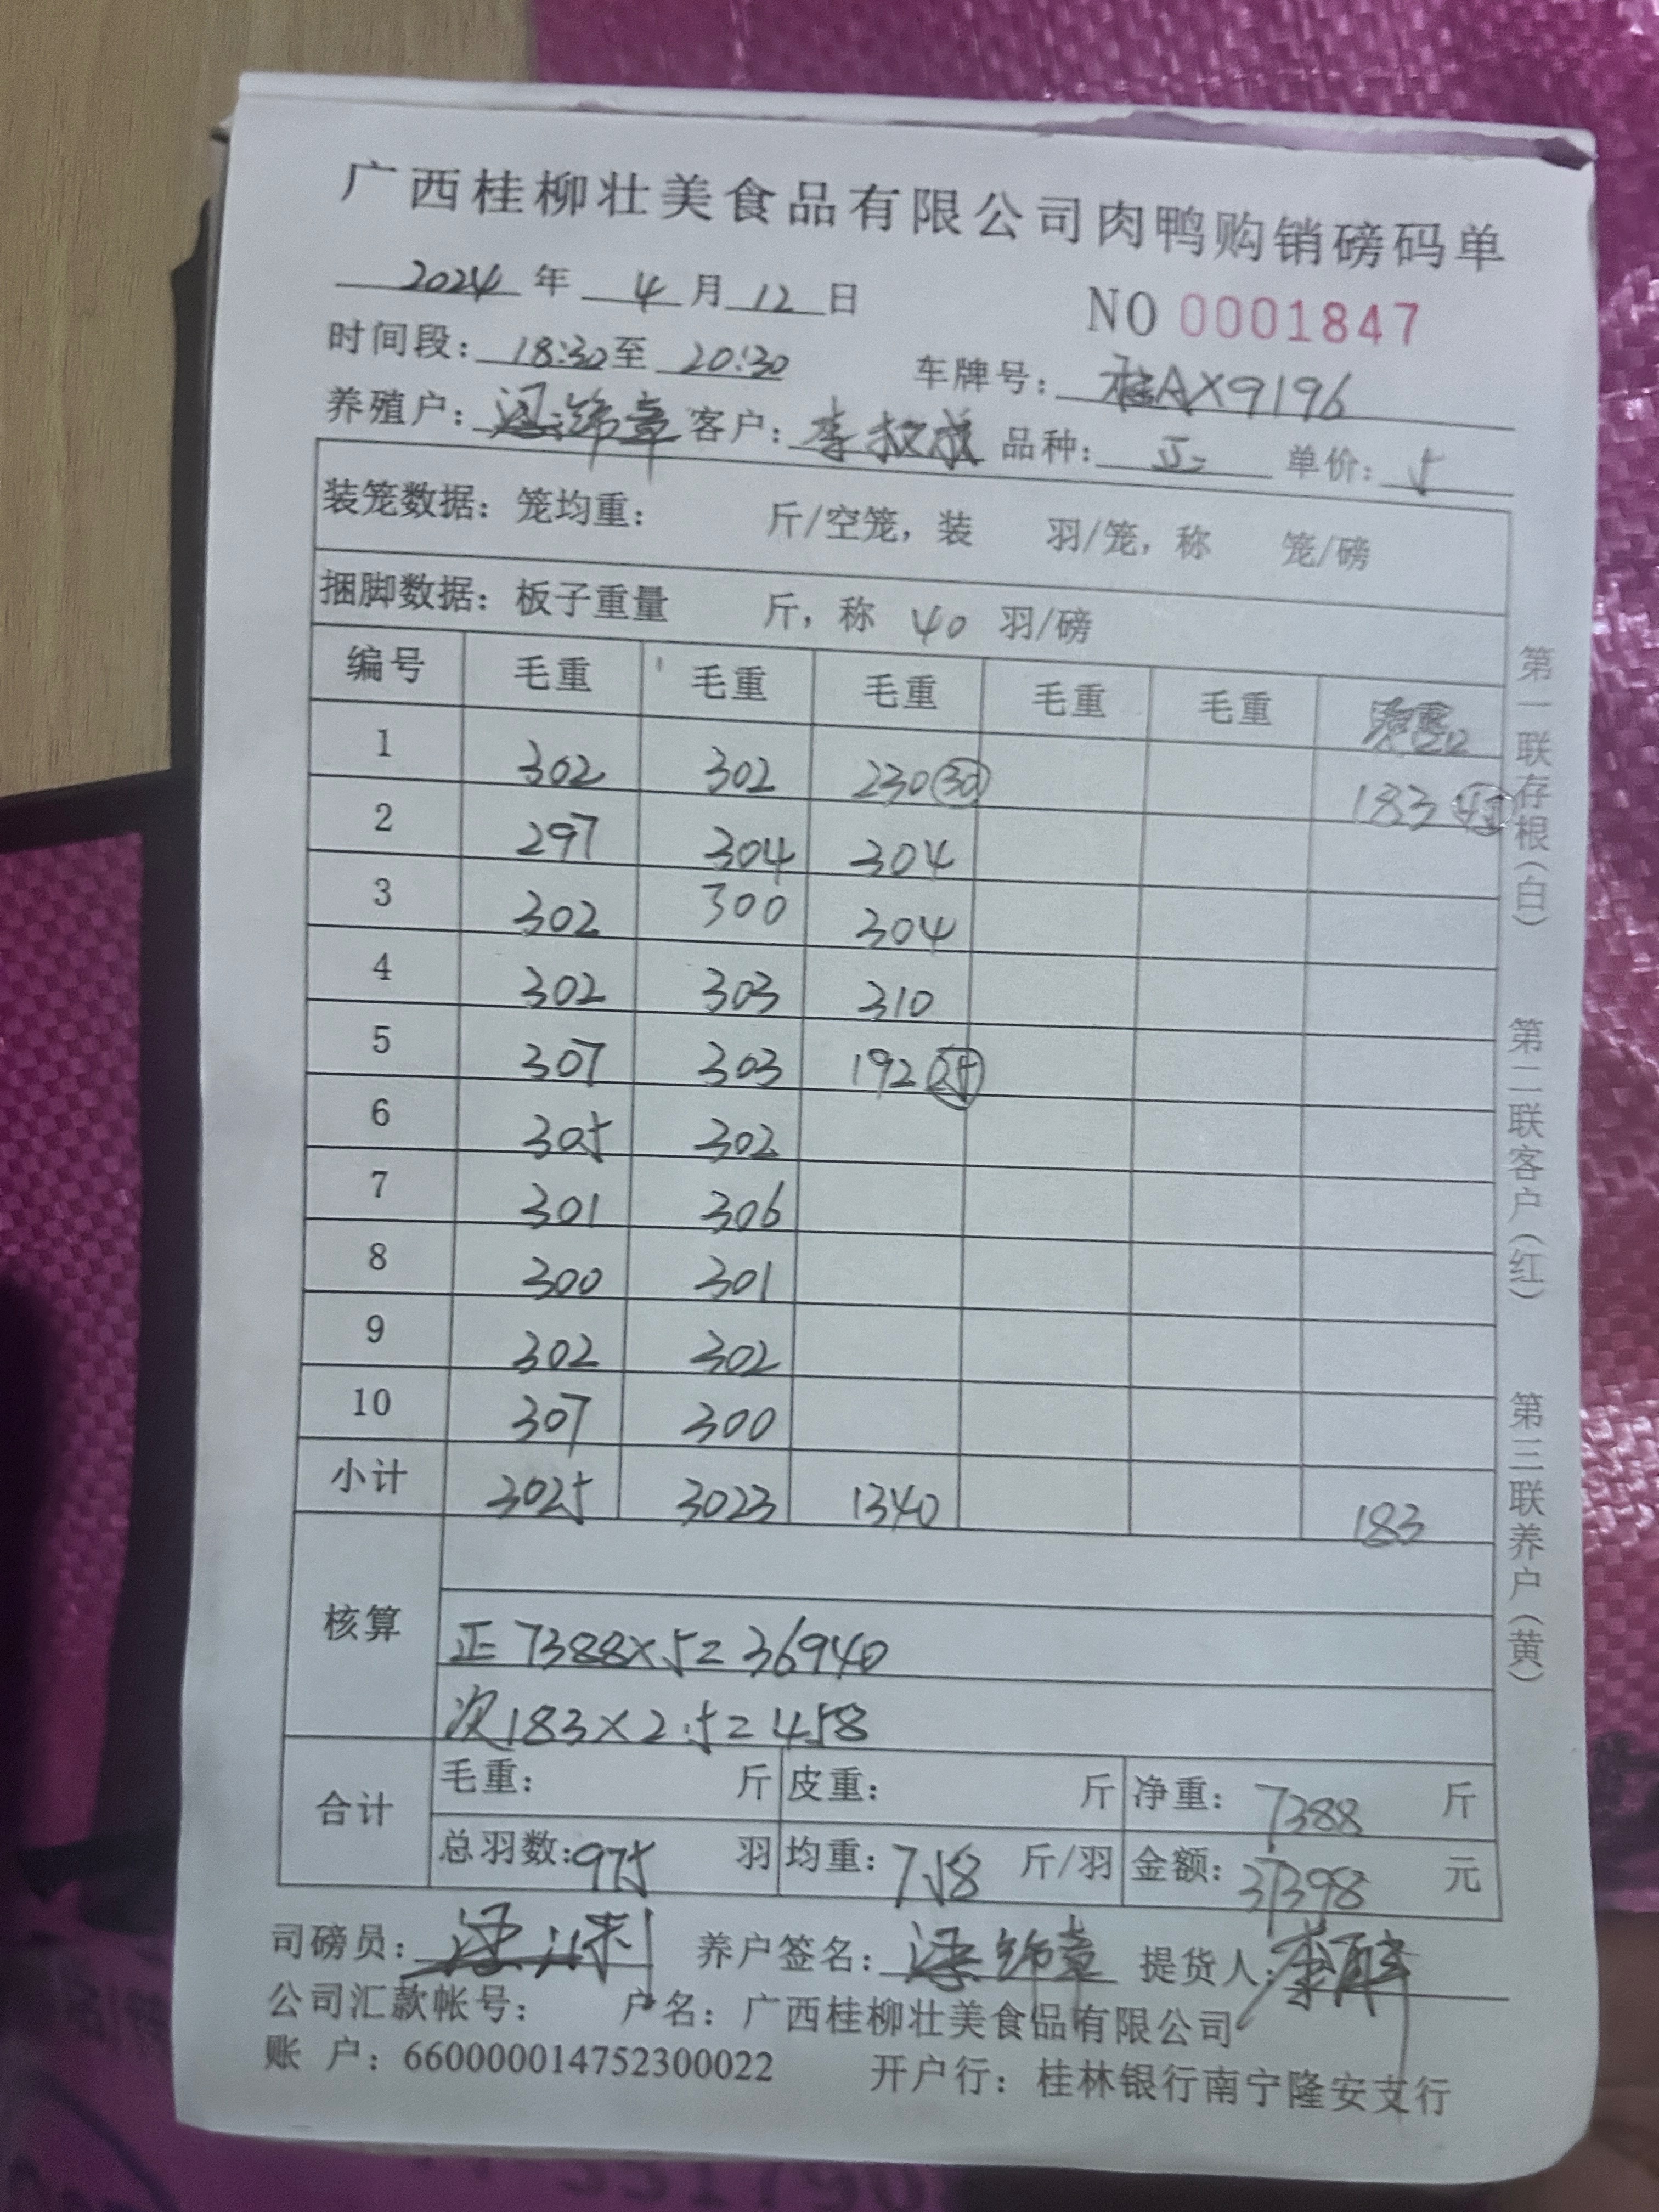 广西桂柳壮美食品有限公司肉鸭购销磅码单
2024年 4月12日 NO 0001847
时间段：18:30至20:30 车牌号：桂AX9196
养殖户：梁锦章 客户： 品种：正 单价：5
装笼数据：笼均重： 斤/空笼，装 羽/笼，称 笼/磅
捆脚数据：板子重量 斤，称 40 羽/磅
编号 毛重 毛重 毛重 毛重 毛重
1 302 302 230 30 183
2 297 304 304
3 302 300 304
4 302 303 310
5 307 303 192 25
6 305 302
7 301 306
8 300 301
9 302 302
10 307 300
小计 3025 3023 1340 183
核算
正 7388×5=36940
次183×2.5=458
合计 毛重： 斤 皮重： 斤 净重：7388 斤
总羽数：975 羽 均重：7.58 斤/羽 金额：37398 元
司磅员： 养户签名：梁锦章 提货人：
公司汇款帐号： 户名：广西桂柳壮美食品有限公司
账 户：660000014752300022 开户行：桂林银行南宁隆安支行
第一联存根（白） 第二联客户（红） 第三联养户（黄）